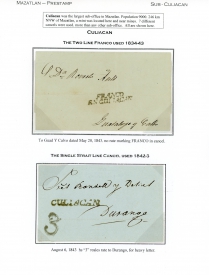 MAZATLAN – PRESTAMP
SUB-CULIACAN
Culiacan was the largest sub-office to Mazatlan. Population 9000, 216 km
NW of Mazatlan, a mint was located here and near mines. 7 different
cancels were used, more than any other sub-office. All are shown here.
CULIACAN
THE TWO LINE FRANCO USED 1834-43
FRANCO
EN CULIACAN
To Guad Y Calvo dated May 26, 1843, no rate marking FRANCO in cancel.
THE SINGLE STRAIT LINE CANCEL USED 1842-3
CULIACAN
3
Durango
August 6, 1842. In "3" reales rate to Durango, for heavy letter.